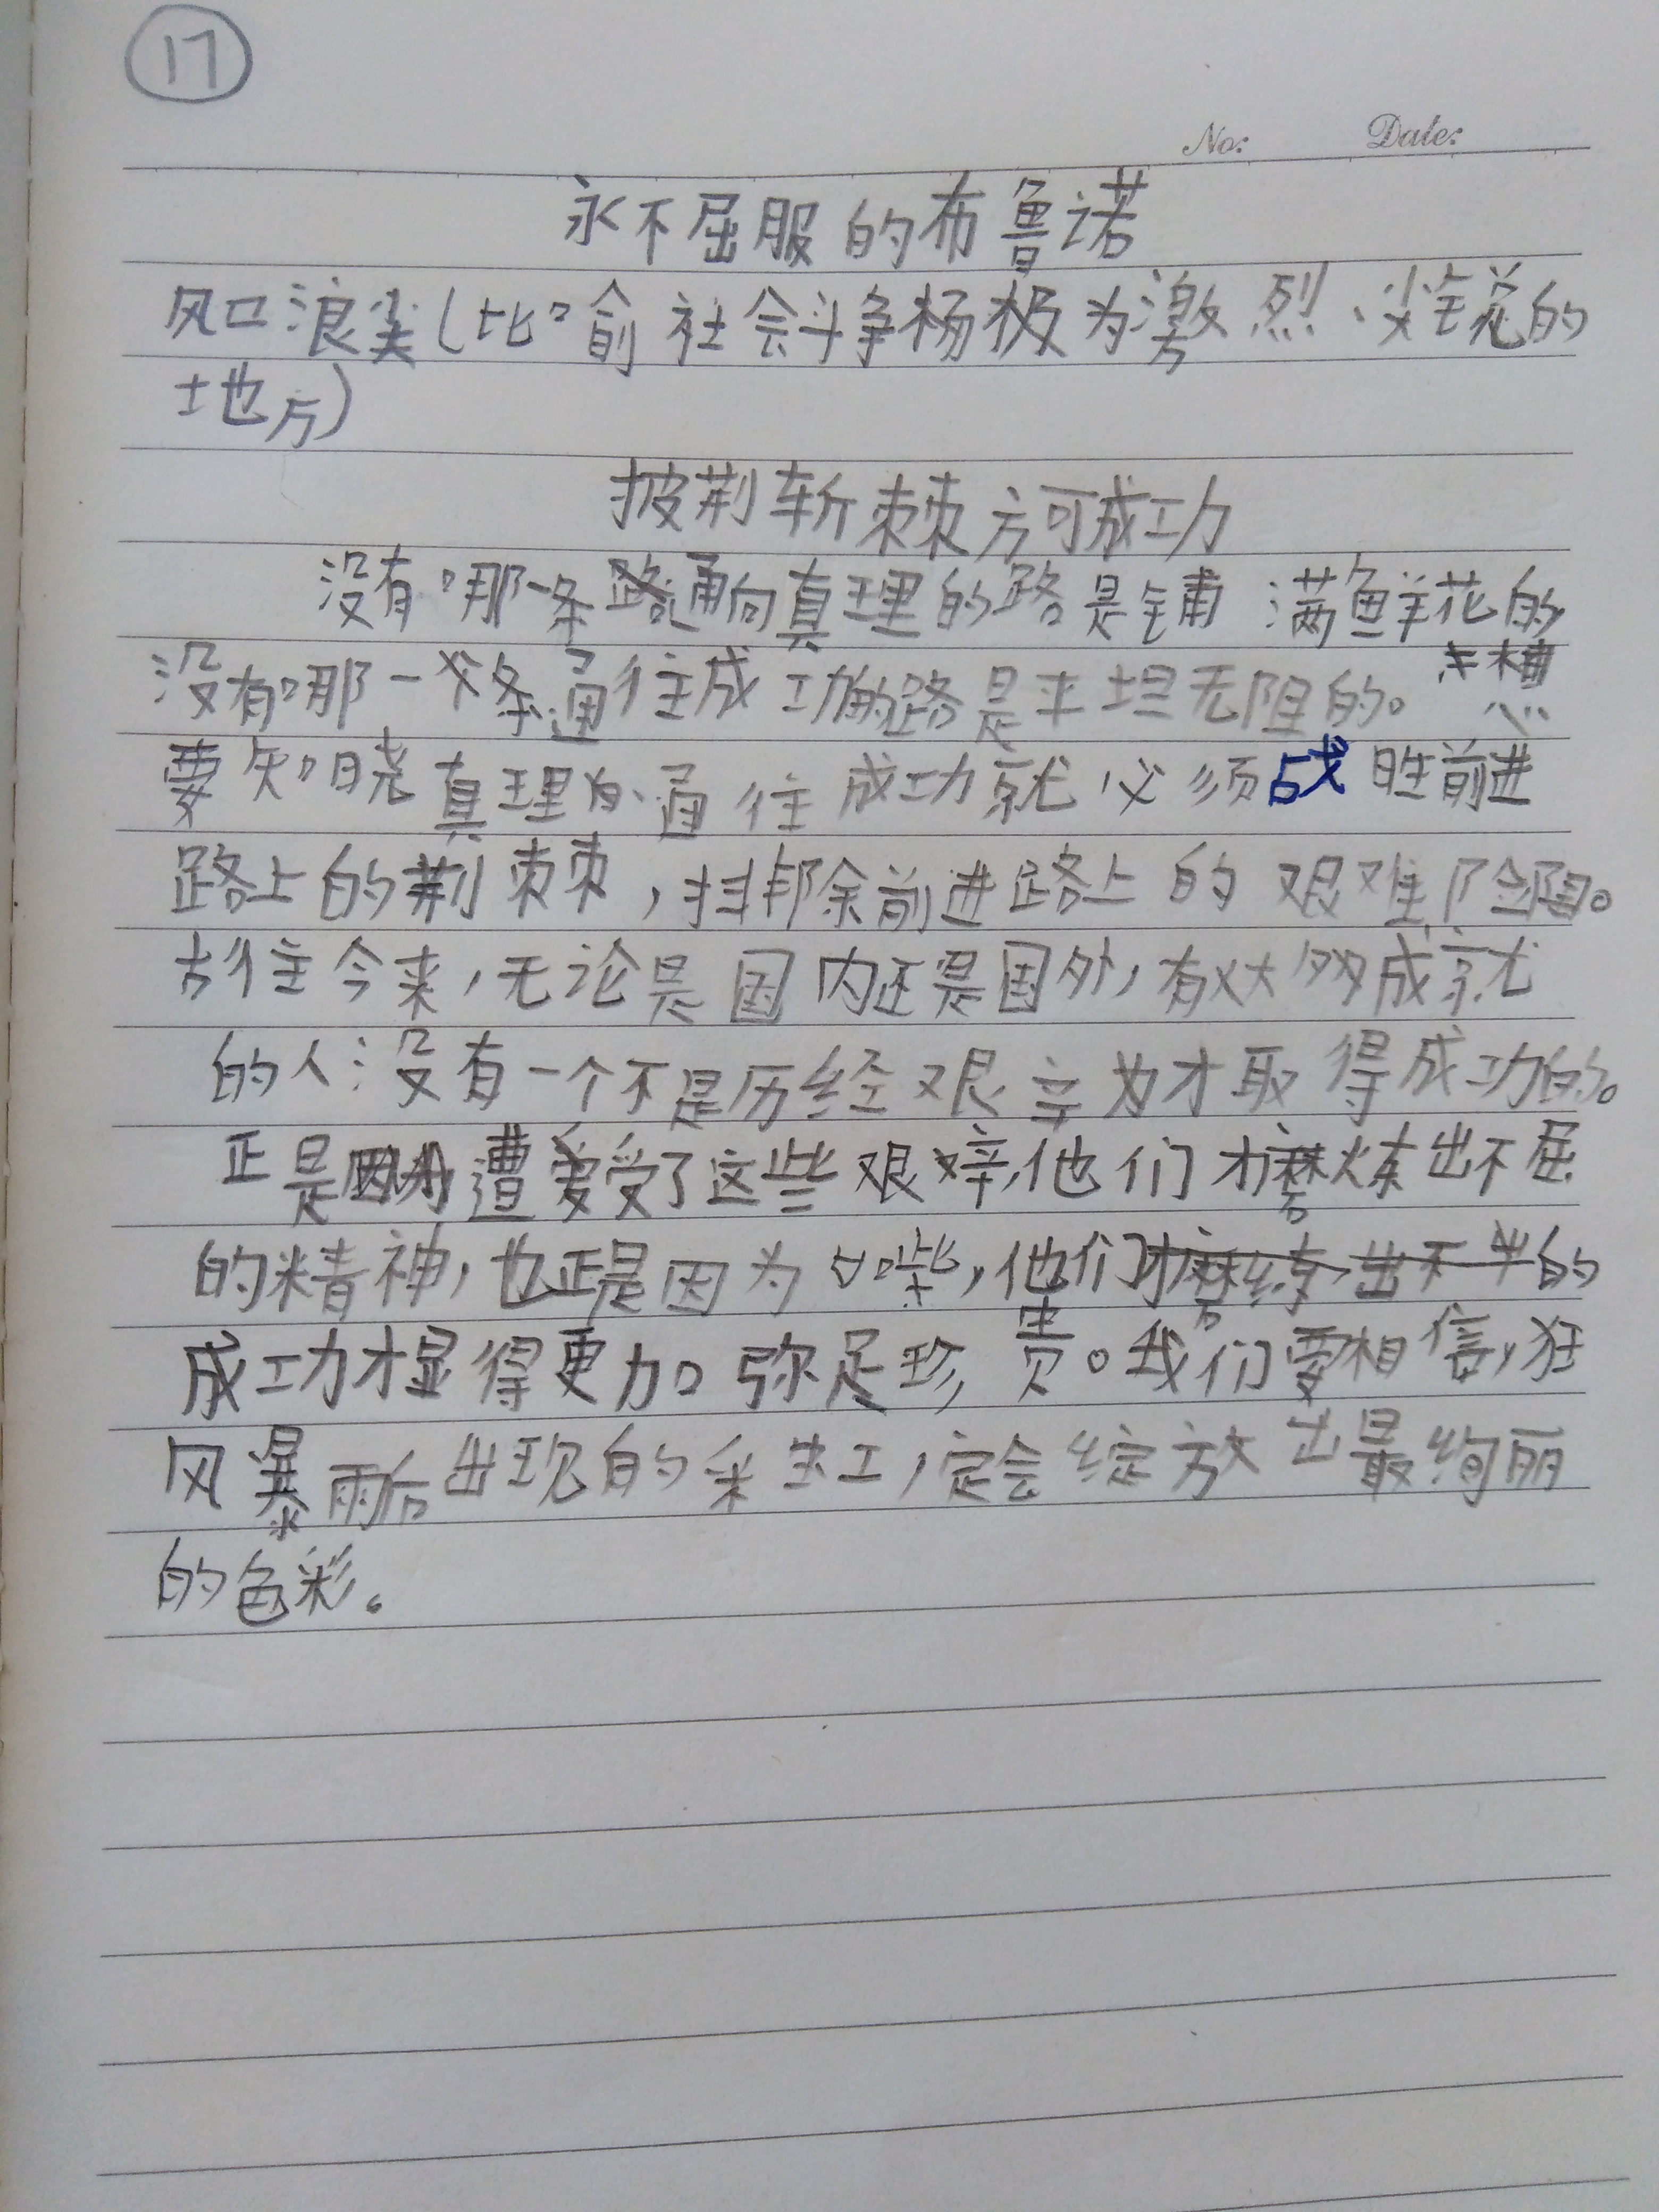 17
No: Date:
永不屈服的布鲁诺
风口浪尖(比喻社会斗争极为激烈、尖锐的
地方)
披荆斩棘方可成功
没有哪一条通向真理的路是铺满鲜花的
没有哪一条通往成功的路是平坦无阻的。想
要知晓真理通往成功就必须战胜前进
路上的荆棘,排除前进路上的艰难险阻。
古往今来,无论是国内还是国外,有成就
的人没有一个不是历经艰辛才取得成功的。
正是因为遭受了这些艰辛,他们才磨炼出不屈
的精神,也正是因为如此,他们的
成功才显得更加弥足珍贵。我们要相信,狂
风暴雨后出现的彩虹,定会绽放出最绚丽
的色彩。